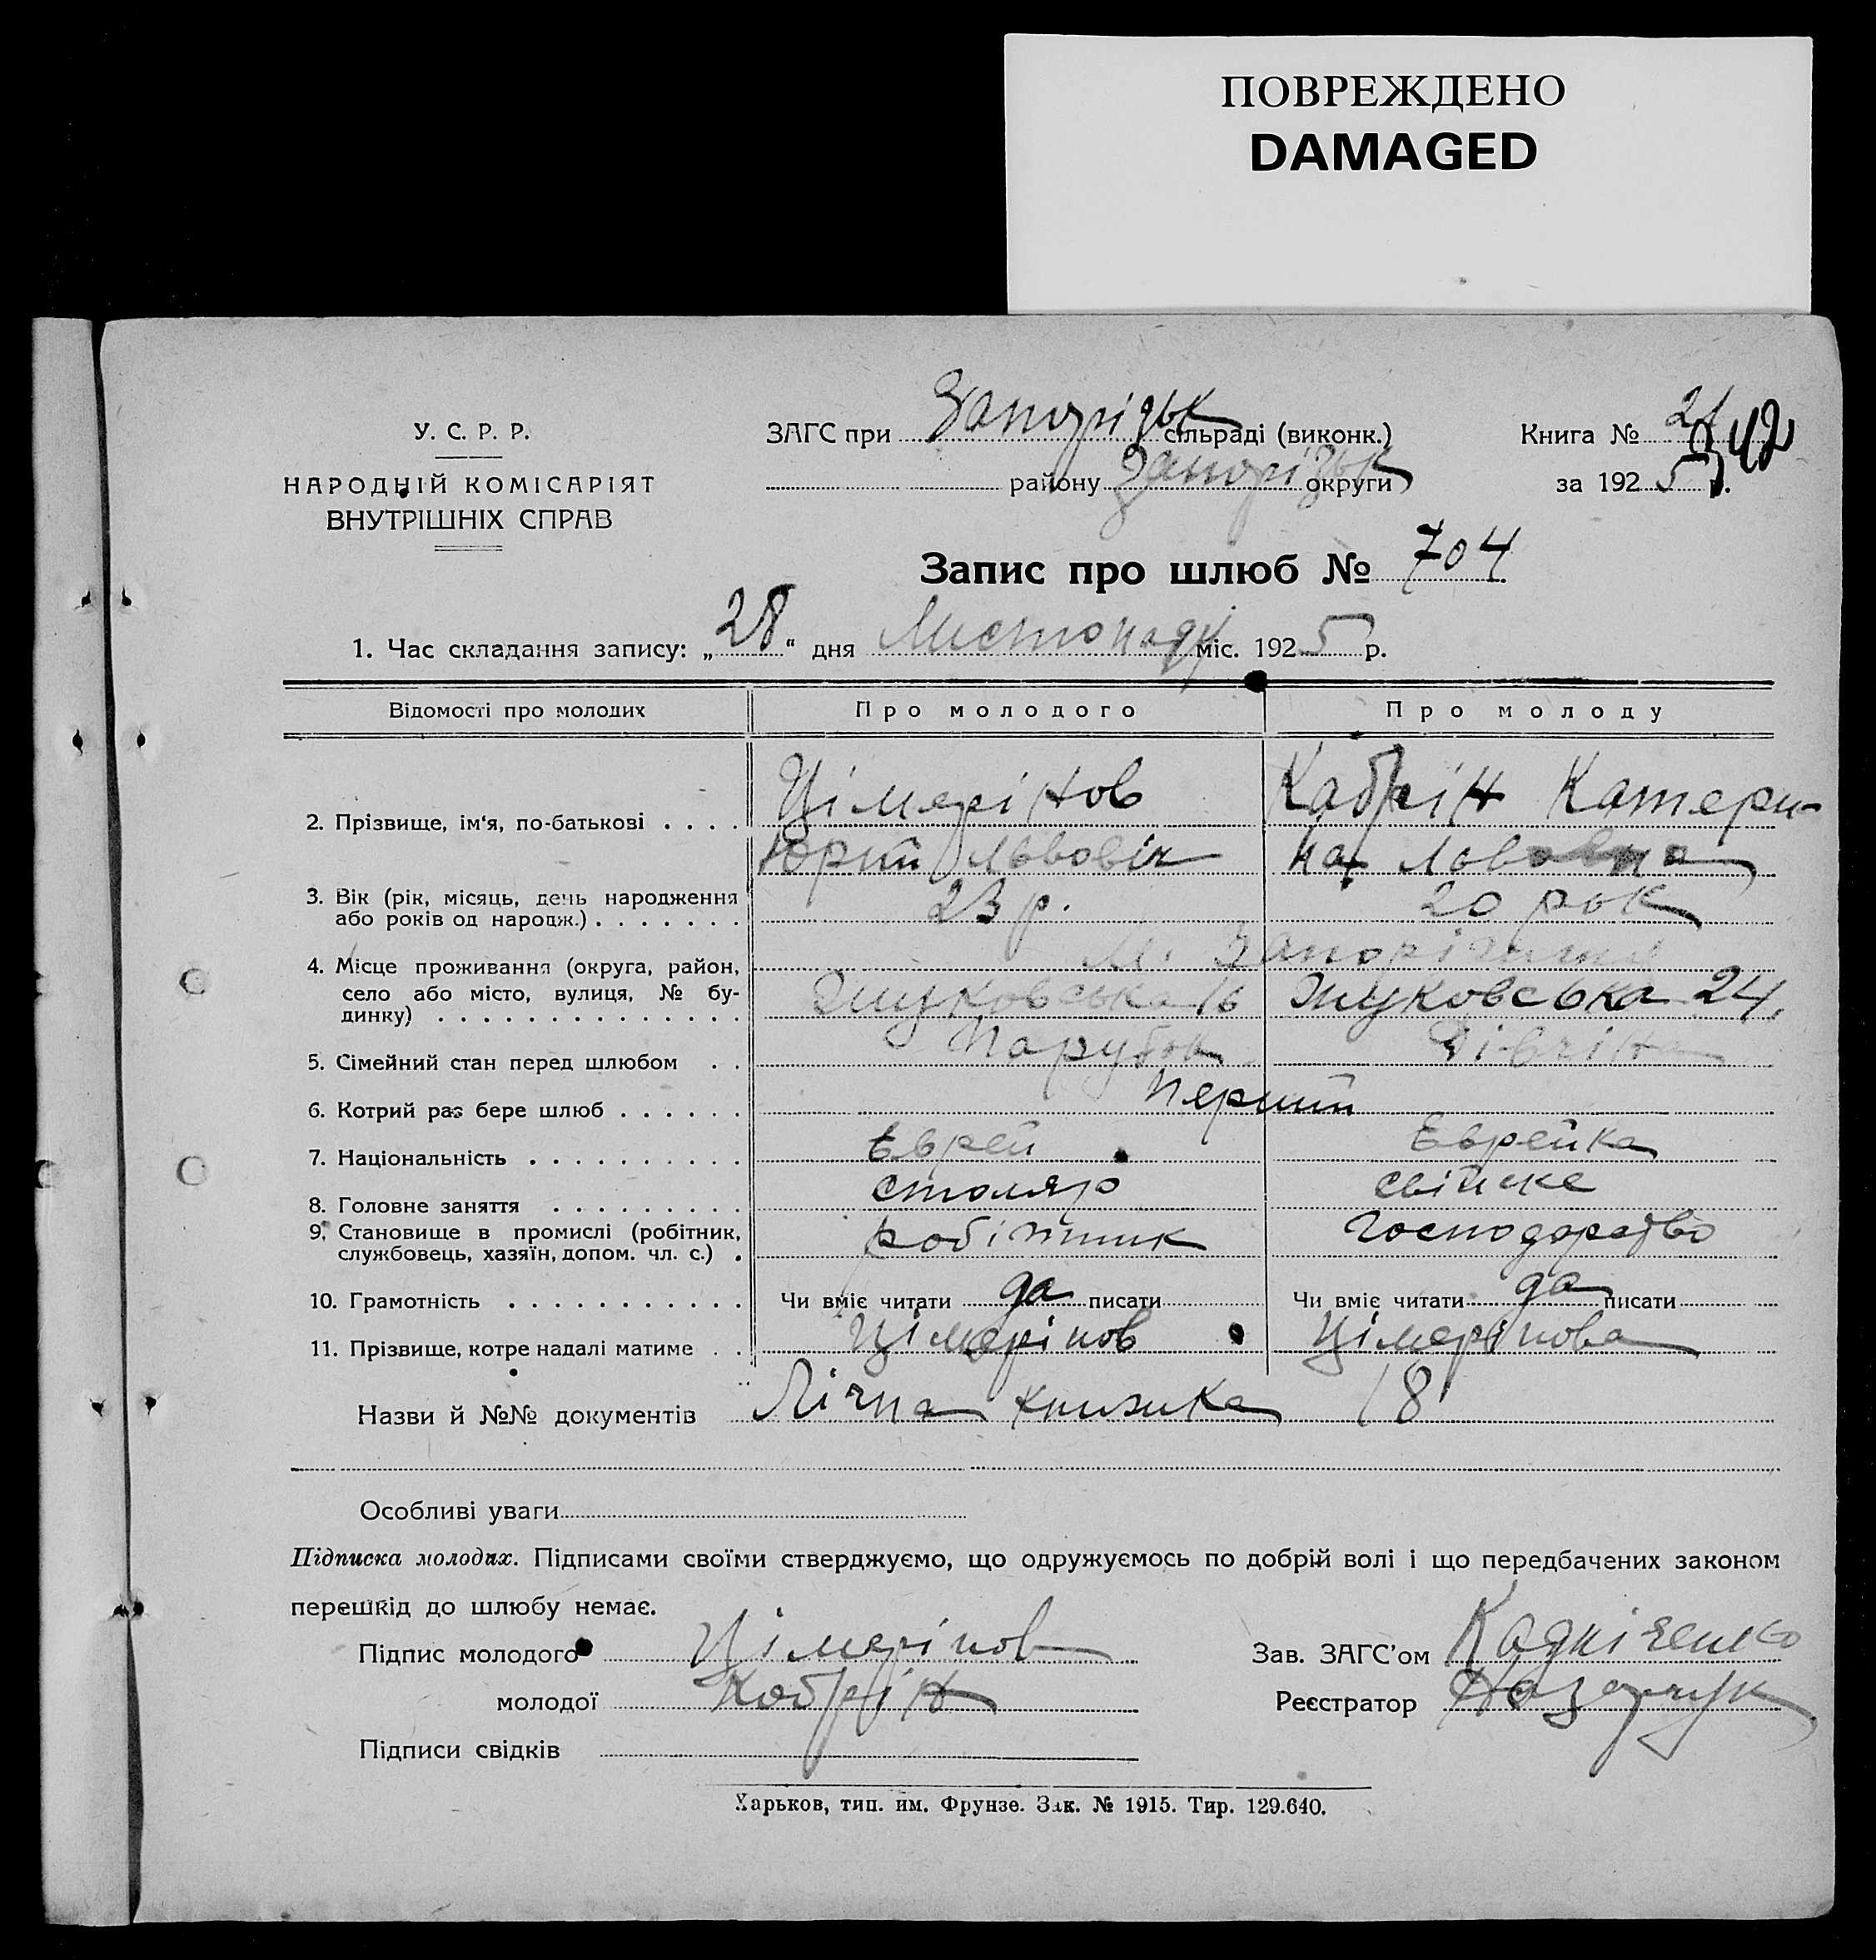 ПОВРЕЖДЕНО
DAMAGED
У. С. Р. Р.
НАРОДНІЙ КОМІСАРІЯТ
ВНУТРІШНІХ СПРАВ
ЗАГС при Запорізьк сільраді (виконк.)
району Запорізьк округи
Книга № 21
342
за 1925 р.
Запис про шлюб № 704
1. Час складання запису: „28“ дня Листопаду міс. 1925 р.
Відомості про молодих Про молодого Про молоду
2. Прізвище, ім'я, по-батькові . . . . Цімерінов Кабрін Катери-
Юрий Львовіч на Львовна
3. Вік (рік, місяць, день народження
або років од народж.) . . . . . . . 23 р. 20 рок
м. Запоріжжя
4. Місце проживання (округа, район,
село або місто, вулиця, № бу-
динку) . . . . . . . . . . . . . . Жуковська 16 Жуковська 24.
5. Сімейний стан перед шлюбом . . Парубок Дівчіна
6. Котрий раз бере шлюб . . . . . . Перший
7. Національність . . . . . . . . . . Еврей Еврейка
8. Головне заняття . . . . . . . . . столяр свійске
9. Становище в промислі (робітник,
службовець, хазяїн, допом. чл. с.) . робітник господарство
10. Грамотність . . . . . . . . . . . Чи вміє читати да писати Чи вміє читати да писати
11. Прізвище, котре надалі матиме . . Цімерінов Цімерінова
Назви й №№ документів Лічна книжка 18
Особливі уваги
Підписка молодих. Підписами своїми стверджуємо, що одружуємось по добрій волі і що передбачених законом
перешкід до шлюбу немає.
Підпис молодого Цімерінов Зав. ЗАГС'ом
молодої Кобрін Реєстратор Назарчук
Підписи свідків
Харьков, тип. им. Фрунзе. Зак. № 1915. Тир. 129.640.